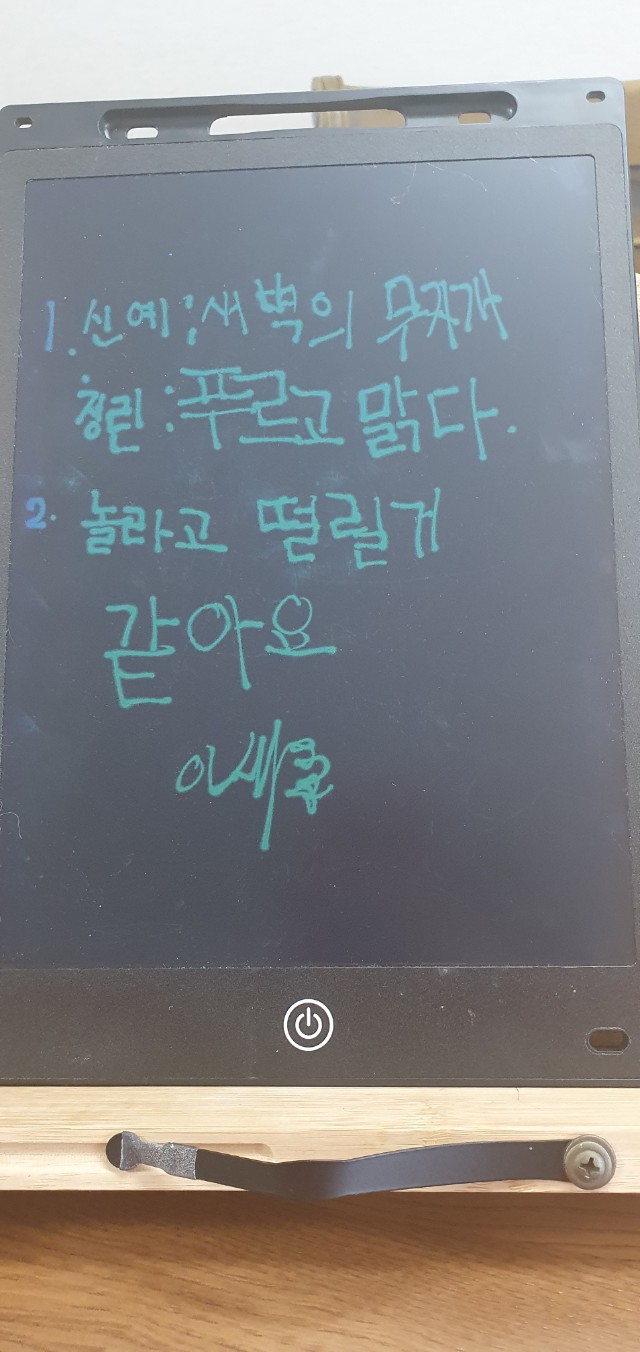 1. 신예 : 새벽의 무지개
청린 : 푸르고 맑다.
2. 놀라고 떨릴거
같아요
이새롬